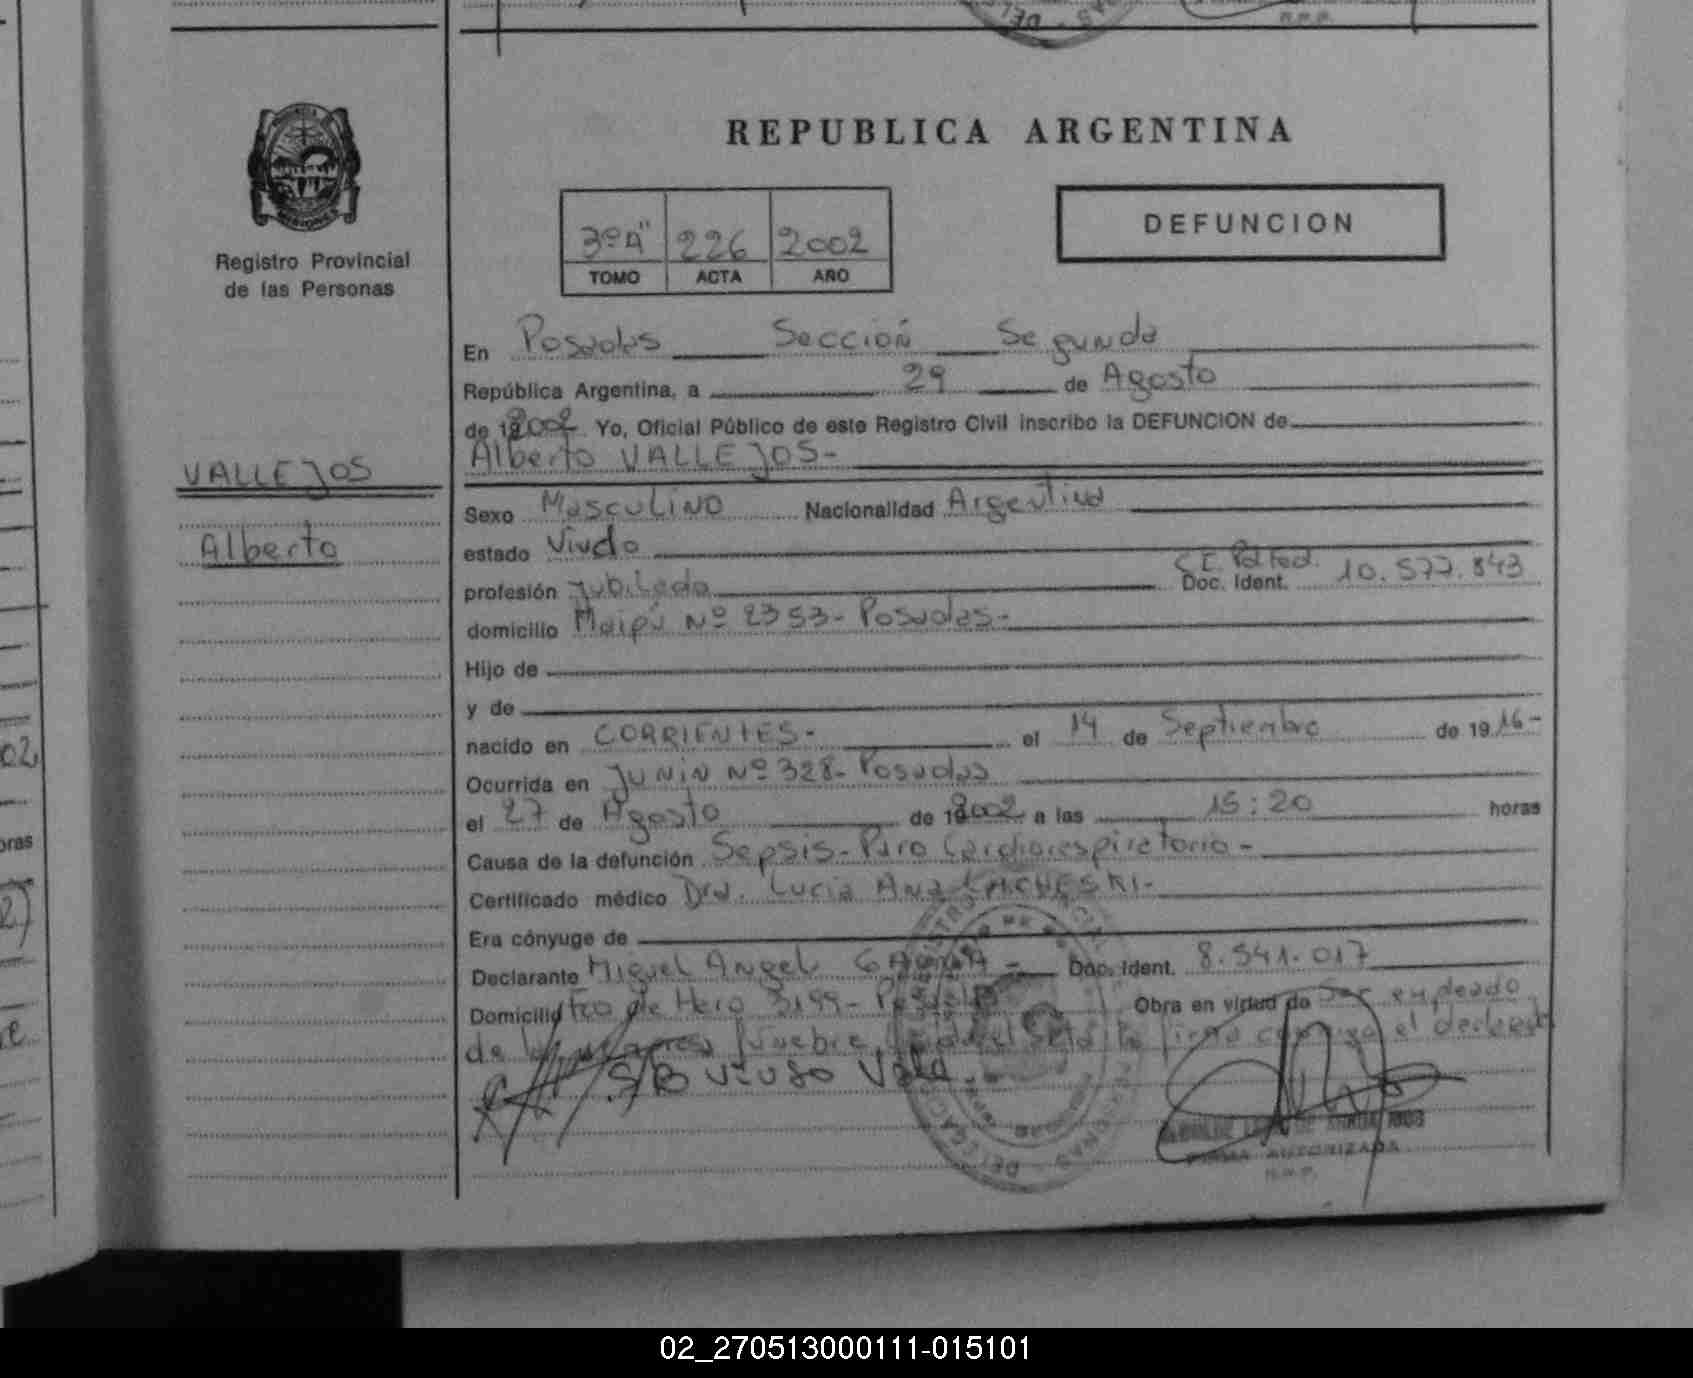 REPUBLICA ARGENTINA
DEFUNCION
3º "A" 226 2002
TOMO ACTA AÑO
Registro Provincial
de las Personas
VALLEJOS
Alberto
En Posadas Sección Segunda
República Argentina, a 29 de Agosto
de 2002 Yo, Oficial Público de este Registro Civil inscribo la DEFUNCION de
Alberto VALLEJOS-
Sexo Masculino Nacionalidad Argentina
estado Viudo
profesión Jubilado C.E. Pol Fed. Doc. Ident. 10.577.843
domicilio Maipú Nº 2353- Posadas-
Hijo de
y de
nacido en CORRIENTES- el 14 de Septiembre de 1916-
Ocurrida en JUNIN Nº 328- Posadas
el 27 de Agosto de 2002 a las 15:20 horas
Causa de la defunción Sepsis- Paro Cardiorespiratorio-
Certificado médico Dra. Lucia Ana
Era cónyuge de
Declarante Miguel Angel Doc. Ident. 8.541.017
Domicilio de 3199- Posadas Obra en virtud de Ser empleado
de la empresa fúnebre firma conmigo el
S/B viudo Vale.
FIRMA AUTORIZADA
R.P.P.
02_270513000111-015101